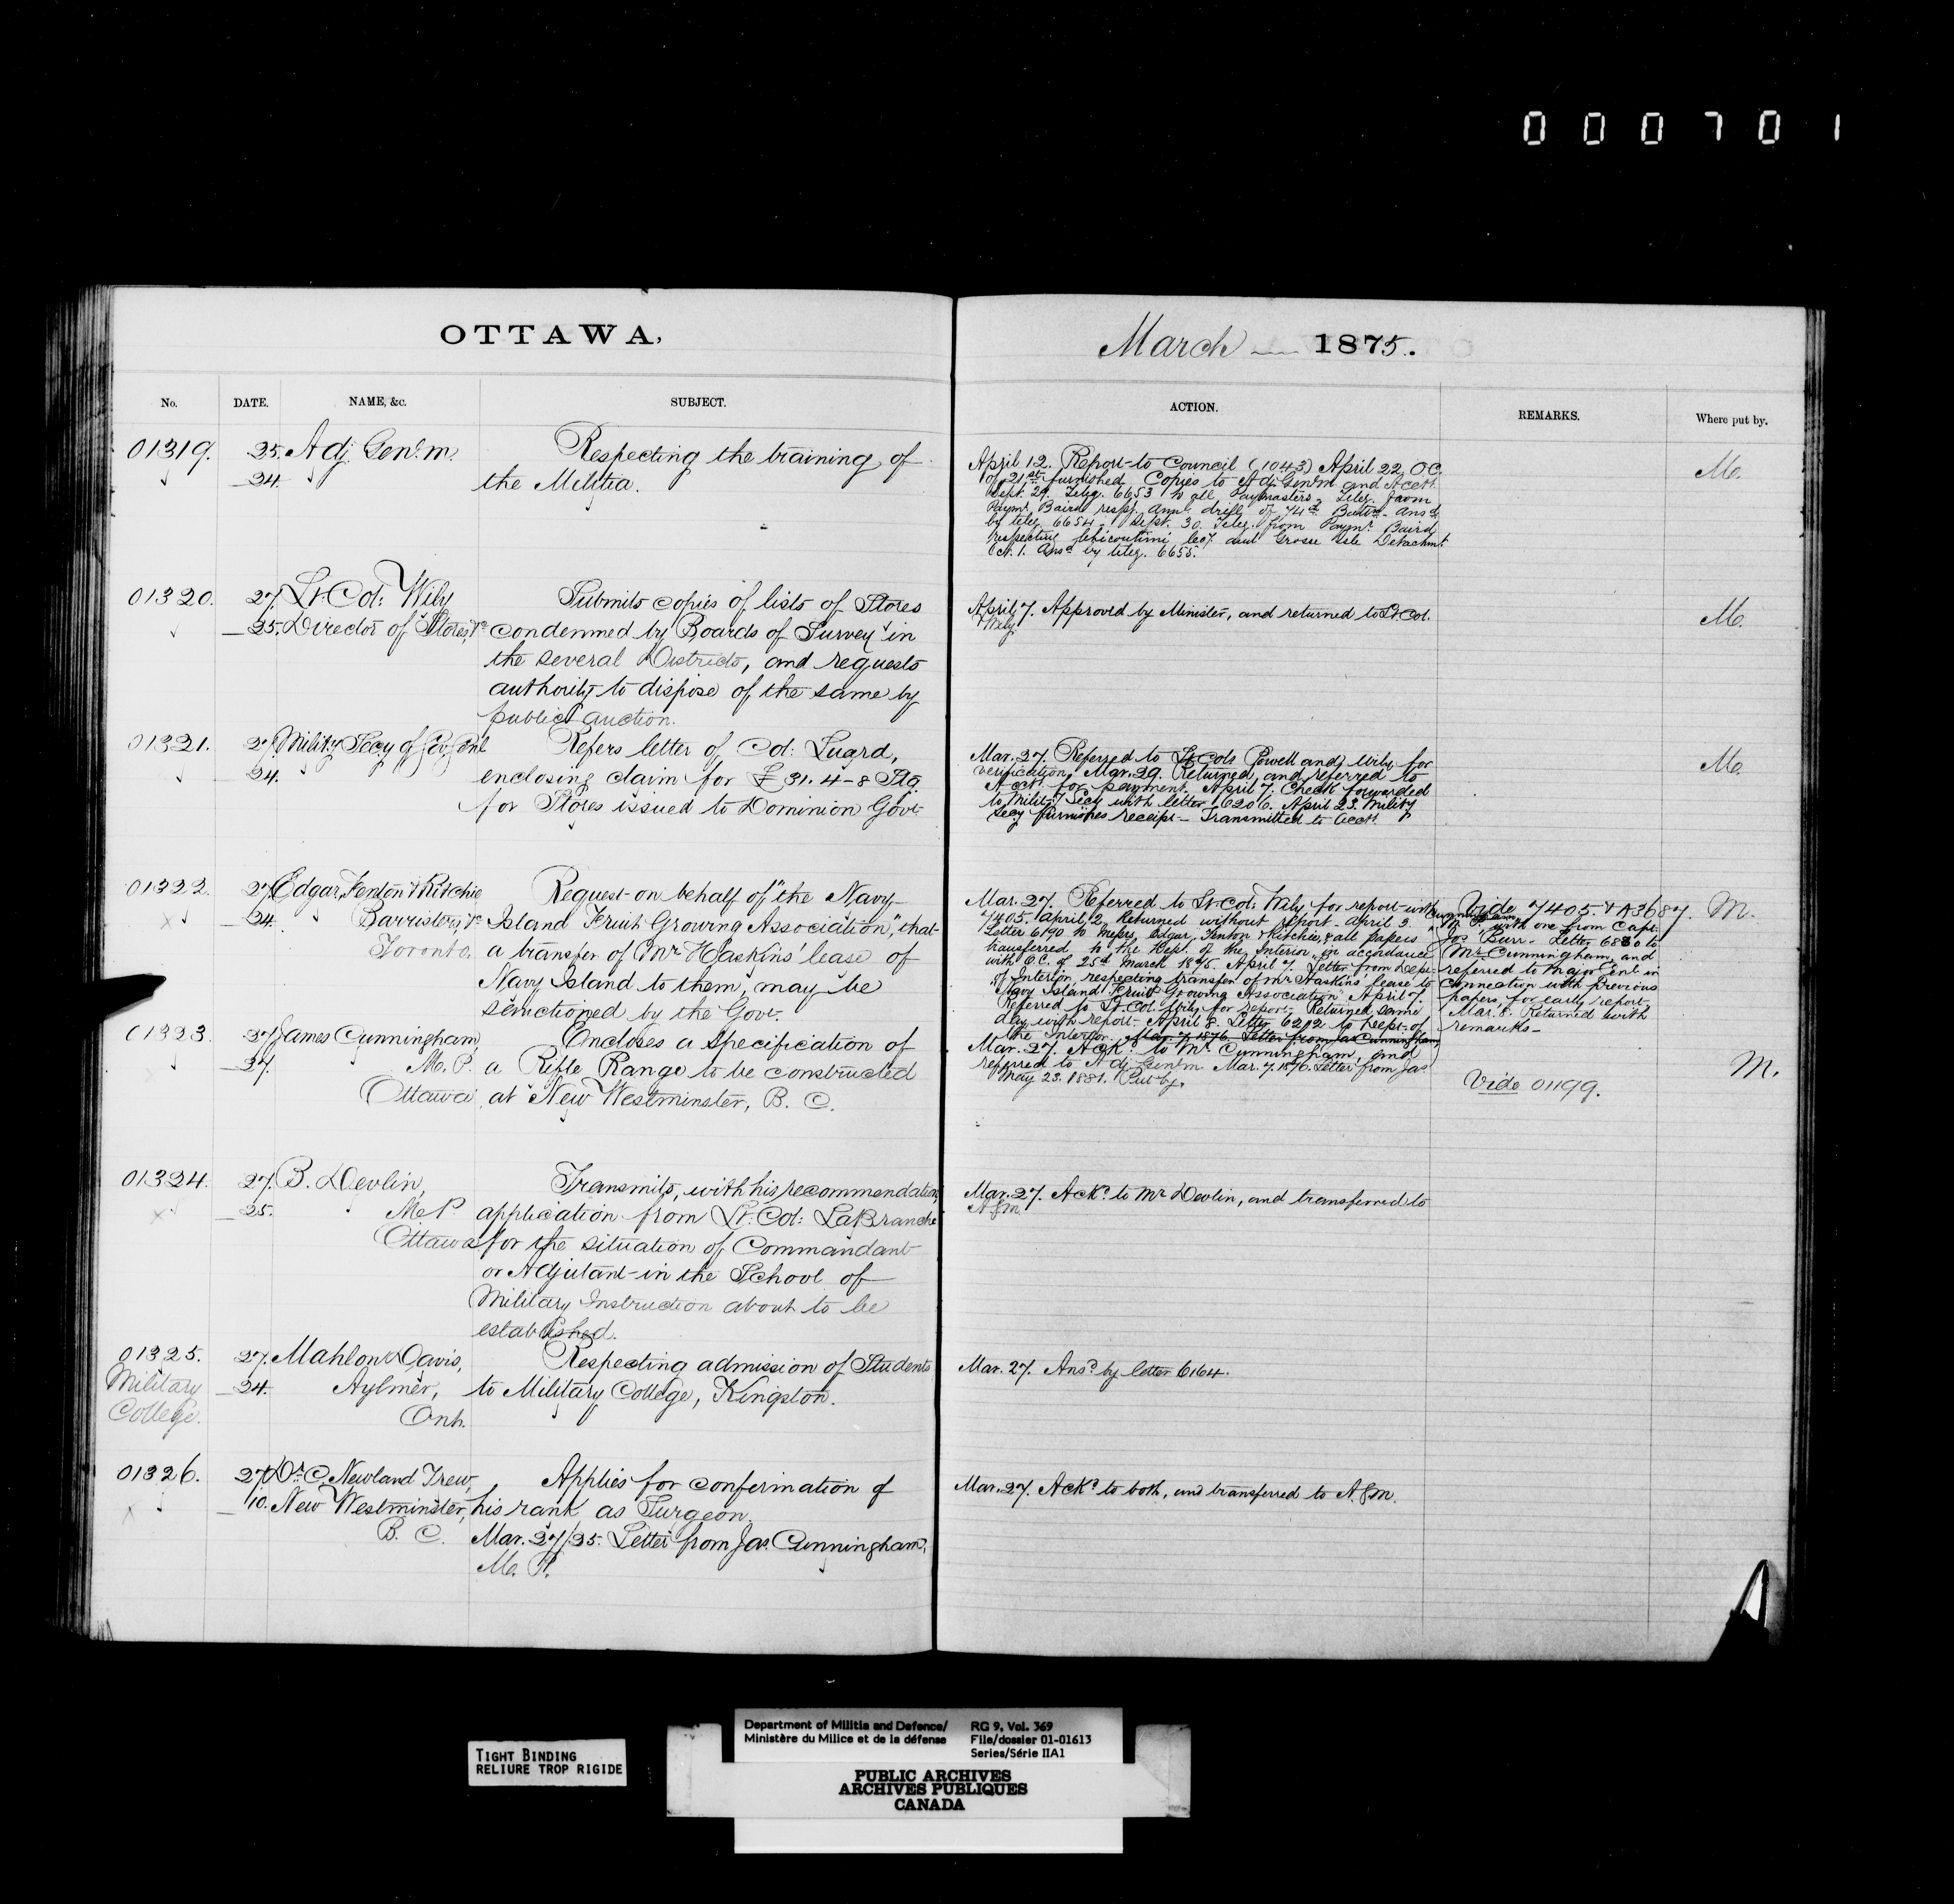 000701
OTTAWA,
March 1875.
No. DATE. NAME, &c. SUBJECT.
ACTION. REMARKS. Where put by.
01319. 25. Adj. Genl. m. Respecting the training of
24. the Militia.
April 12. Report to Council (1043) April 22, O.C.
of 21st furnished Copies to Adj Genl m and Acctt.
Sept. 29. Teleg. 6653 to all Paymasters. Teleg. from
Paymr. Baird respg. Annl drill of 74th Battn. Ansd.
by teleg. 6654. Sept. 30. Teleg. from Paymr. Baird
respecting Chicoutimi Coy. and Grosse Isle Detachmt.
Oct. 1. Ansd by teleg. 6655.
M.
01320. 27. Lt. Col: Wily Submits copies of lists of Stores
25. Director of Stores, &c condemned by Boards of Survey in
the several Districts, and requests
authority to dispose of the same by
public auction.
April 7. Approved by Minister, and returned to Lt. Col.
Wily.
M.
01321. 27. Military Secy of Gov. Genl Refers letter of Col: Luard,
24. enclosing claim for £31.4-8 Stg
for Stores issued to Dominion Govt.
Mar. 27. Referred to Lt Cols Powell and Wily for
verification. Mar. 29. Returned, and referred to
Acctt. for payment. April 7. Check forwarded
to Military Secy with letter 6206. April 23. Military
Secy furnishes receipt - Transmitted to Acctt.
M.
01322. 27. Edgar, Fenton & Ritchie Request on behalf of "the Navy
24. Barristers, &c Island Fruit Growing Association", that
Toronto. a transfer of Mr Haskins' lease of
Navy Island to them, may be
sanctioned by the Govt.
Mar. 27. Referred to Lt. Col: Wily for report with
7405. April 2. Returned without report. April 3.
Letter 6190 to Messrs. Edgar, Fenton & Ritchie, & all papers
transferred to the Dept. of the Interior, in accordance
with O.C. of 25th March 1875. April 7. Letter from Dept.
of Interior, respecting transfer of Mr Haskins' lease to
"Navy Island Fruit Growing Association" April 7.
Referred to Lt. Col. Wily for report. Returned same
day with report. April 8. Letter 6212 to Dept. of
the Interior. Mar. 7 1876. Letter from Jas Cunningham
Vide 7405. & A3687. M.
Cunningham
M.P. with one from Capt.
Jos Burr. Letter 6880 to
Mr. Cunningham, and
referred to Major Genl in
connection with previous
papers, for early report.
Mar. 8. Returned with
remarks.
01323. 27. James Cunningham, Encloses a specification of
27. M. P. a Rifle Range to be constructed
Ottawa at New Westminster, B. C.
Mar. 27. Ackd. to Mr. Cunningham, and
referred to Adj. Genl m. Mar. 7. 1876. Letter from Jas
May 23. 1881. Put by.
Vide 01199.
M.
01324. 27. B. Devlin, Transmits, with his recommendation,
25. M.P. application from Lt. Col: LaBranche
Ottawa for the situation of Commandant
or Adjutant in the School of
Military Instruction about to be
established.
Mar. 27. Ackd. to Mr Devlin, and transferred to
A.G.M.
01325. 27. Mahlon Davis, Respecting admission of Students
Military 24. Aylmer, to Military College, Kingston.
College. Ont.
Mar. 27. Ansd. by letter 6164.
01326. 27. Dr. C. Newland Trew, Applies for confirmation of
10. New Westminster, his rank as Surgeon.
B. C. Mar. 27/25. Letter from Jas. Cunningham,
M. P.
Mar. 27. Ackd. to both, and transferred to A.G.M.
TIGHT BINDING
RELIURE TROP RIGIDE
Department of Militia and Defence/
Ministère du Milice et de la défense
RG 9, Vol. 369
File/dossier 01-01613
Series/Série IIA1
PUBLIC ARCHIVES
ARCHIVES PUBLIQUES
CANADA